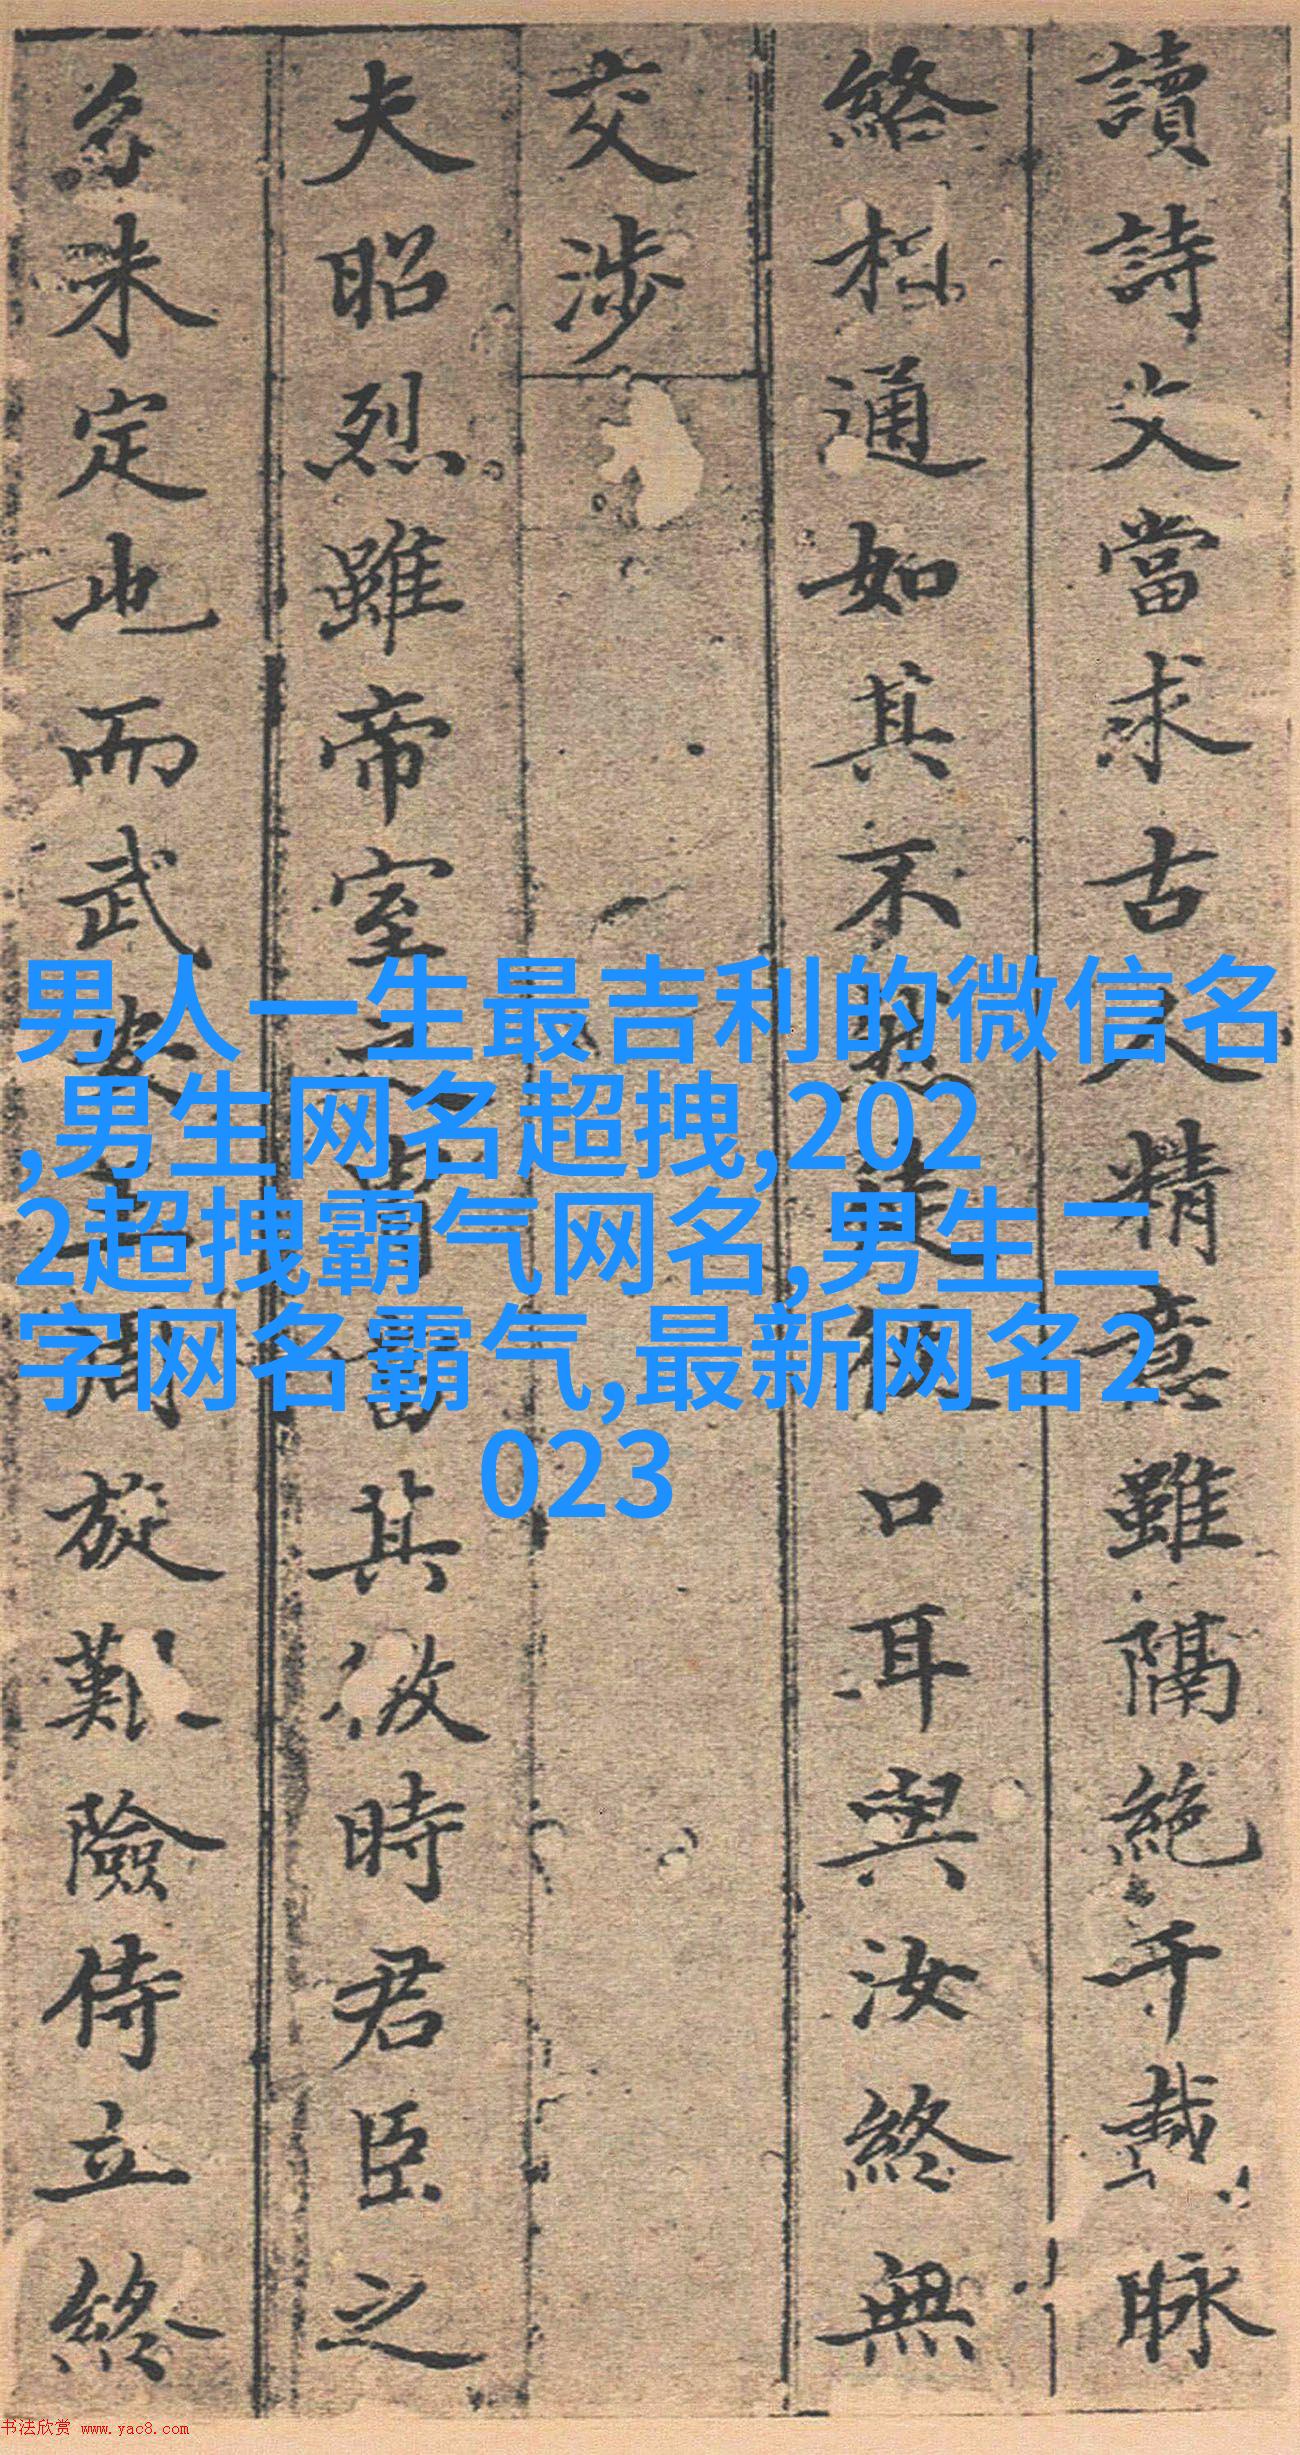 讀詩文當求古人精意雖隔絶千載脉
絡相通如其不然徒從口耳與汝終無
交涉
夫昭烈雖帝室之胄當其微時君臣之
分未定也而武安王周旋艱險侍立終
男人一生最吉利的微信名
,男生网名超拽,202
2超拽霸气网名,男生二
字网名霸气,最新网名2
023
书法欣赏 www.yac8.com